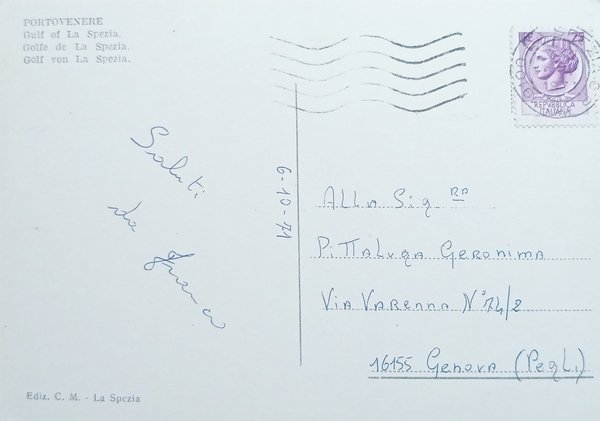 PORTOVENERE
Gulf of La Spezia.
Golfe de La Spezia.
Golf von La Spezia.
Saluti
da Franco
6-10-71
25
REPUBBLICA
ITALIANA
Alla Sig.ra
Pittaluga Geronima
Via Varenna N°74/2
16155 Genova (Pegli)
Ediz. C. M. - La Spezia